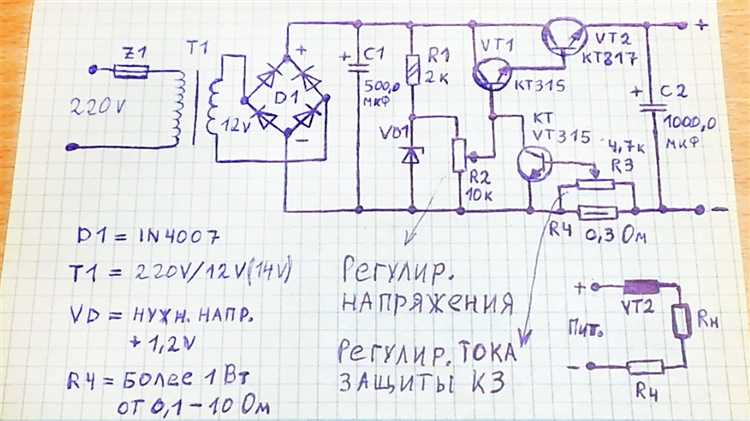 Z1
T1
220V
12V
D1
+
-
+
C1
500,0
мкф
R1
2к
VD1
R2
10к
VT1
КТ315
VT2
КТ817
КТ
VT315
4,7к
R3
R4
0,3 Ом
+
C2
1000,0
мкф
+
-
D1 = IN4007
T1 = 220V/12V(14V)
VD = НУЖН. НАПР.
+ 1,2V
R4 = БОЛЕЕ 1 Вт
ОТ 0,1 - 10 Ом
РЕГУЛИР.
НАПРЯЖЕНИЯ
РЕГУЛИР. ТОКА
ЗАЩИТЫ КЗ
+
VT2
Пит.
Rн
-
R4